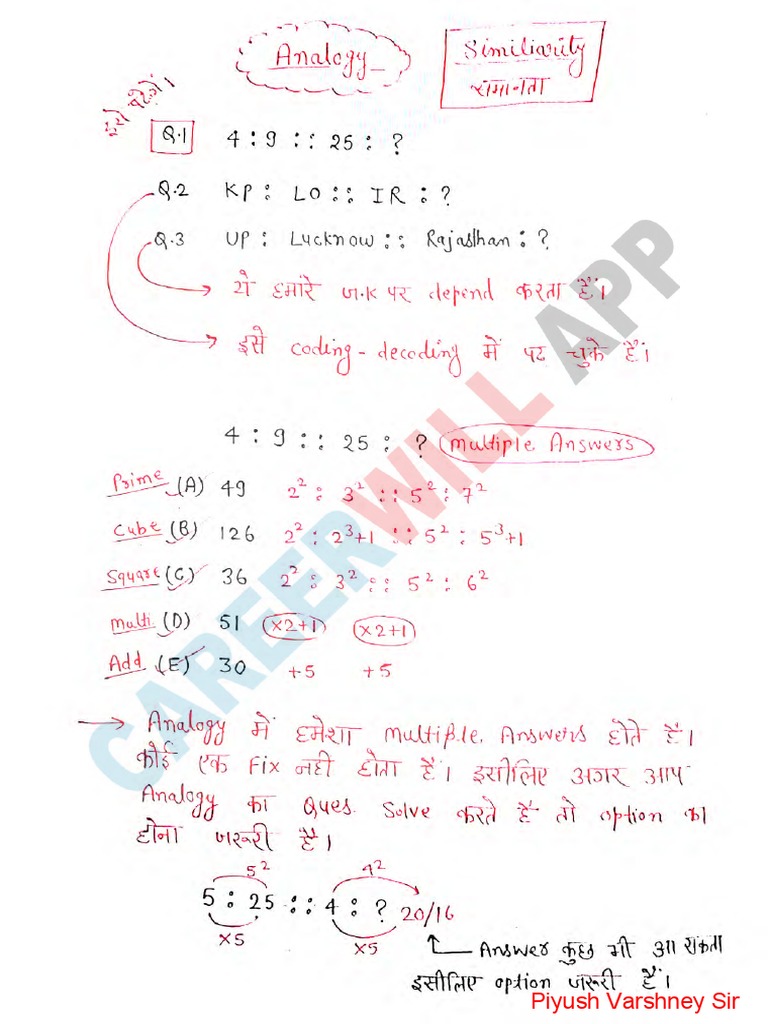 Analogy
Similiarity
समानता
इसे पढ़ेगें।
Q.1 4 : 9 :: 25 : ?
Q.2 KP : LO :: IR : ?
Q.3 UP : Lucknow :: Rajasthan : ?
ये हमारे G.K पर depend करता हैं।
इसे coding-decoding में पढ चुके हैं।
4 : 9 :: 25 : ? Multiple Answers
Prime (A) 49 2² : 3² :: 5² : 7²
Cube (B) 126 2² : 2³+1 :: 5² : 5³+1
Square (C) 36 2² : 3² :: 5² : 6²
Multi. (D) 51 ×2+1 ×2+1
Add (E) 30 +5 +5
→ Analogy में हमेशा Multiple Answers होते हैं।
कोई एक Fix नही होता हैं। इसीलिए अगर आप
Analogy का Ques. Solve करते हैं तो option का
होना जरूरी हैं।
5² 4²
5 : 25 :: 4 : ? 20/16
×5 ×5
Answer कुछ भी आ सकता
इसीलिए option जरूरी हैं।
Piyush Varshney Sir
CAREERWILL APP